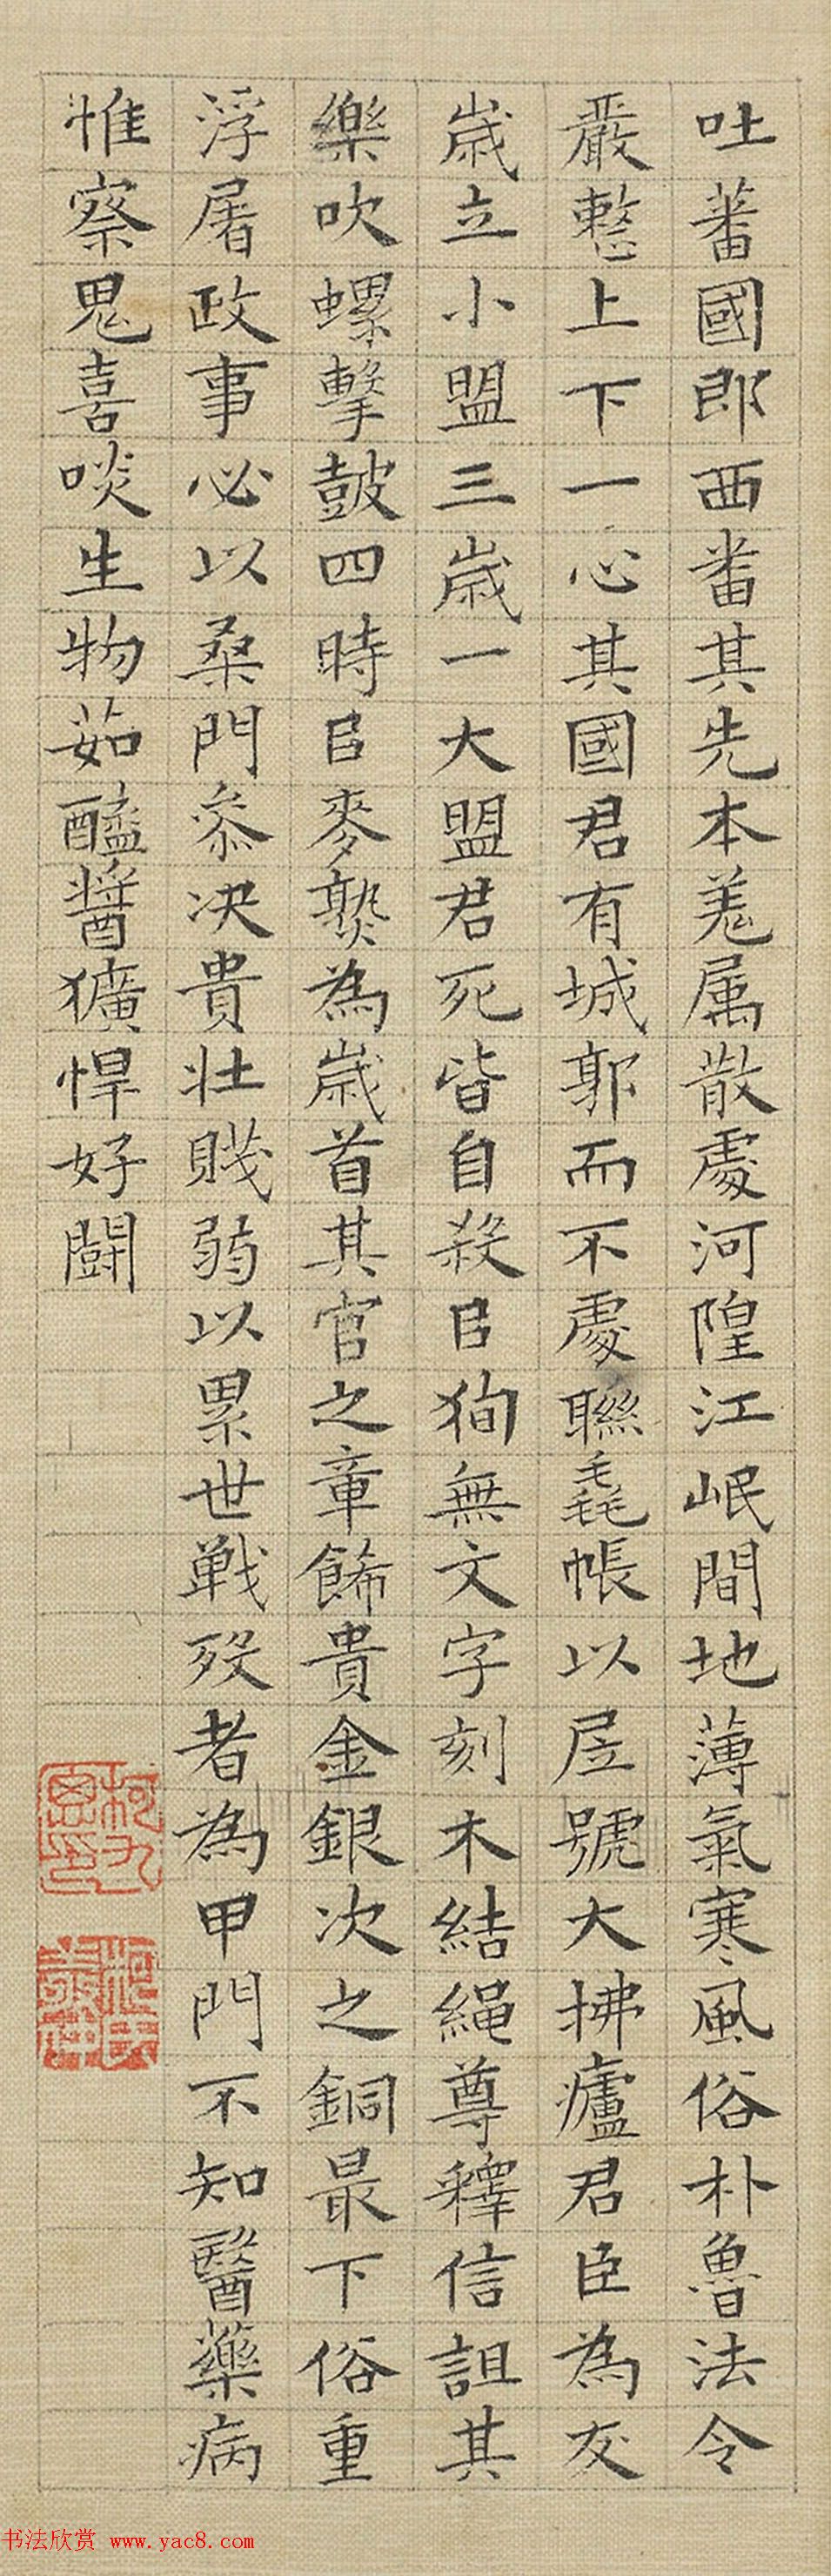 吐蕃國即西番其先本羌属散處河隍江岷間地薄氣寒風俗朴魯法令
嚴整上下一心其國君有城郭而不處聯毳帳以居號大拂廬君臣為友
歲立小盟三歲一大盟君死皆自殺㠯狥無文字刻木結繩尊釋信詛其
樂吹螺擊鼓四時㠯麥熟為歲首其官之章餙貴金銀次之銅最下俗重
浮屠政事必以桑門叅决貴壮賤弱以累世戰歿者為甲門不知醫藥病
惟察鬼喜啖生物茹醯醬獷悍好鬪
柯九思印
柯氏敬仲
书法欣赏 www.yac8.com